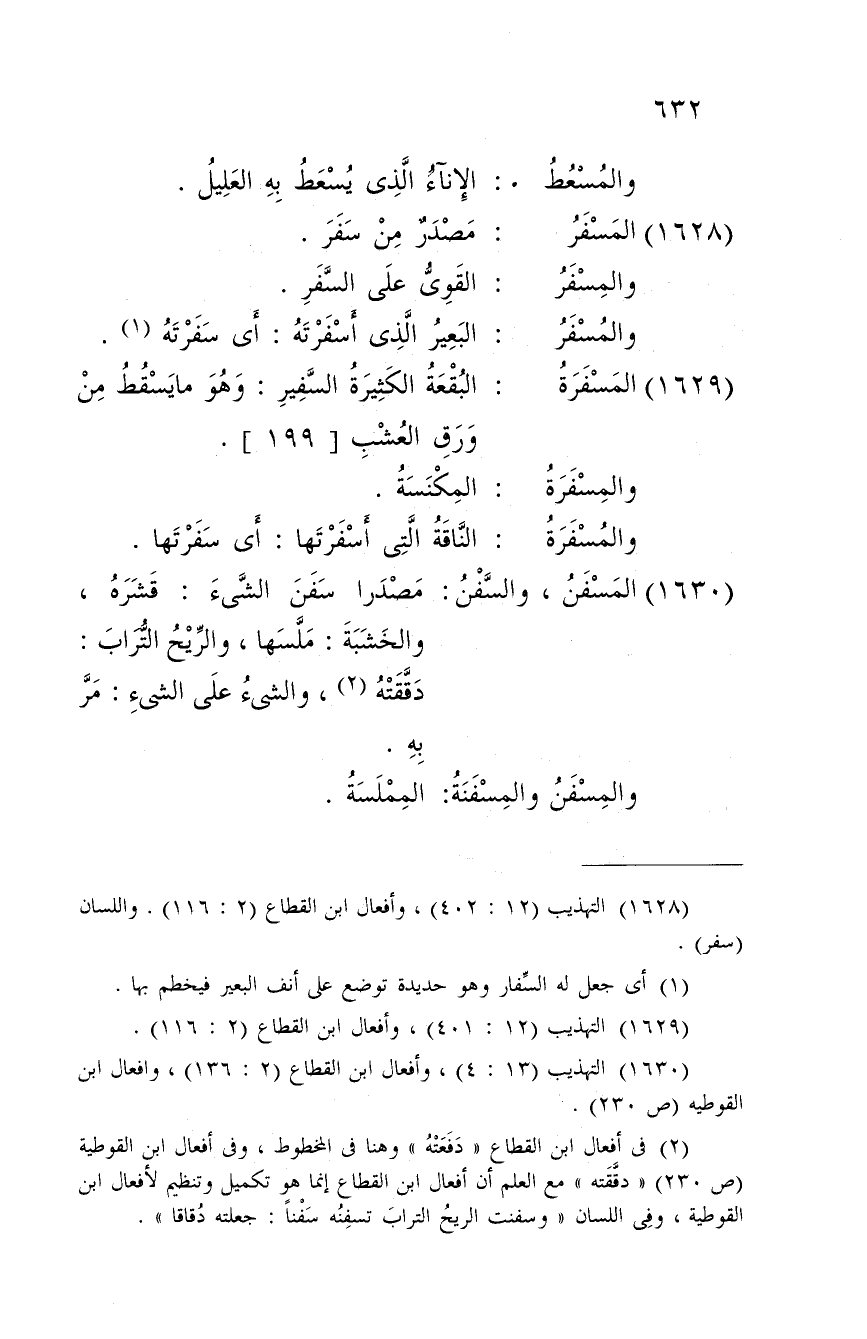 ٦٣٢
والمُسْعُطُ . : الإنآءُ الَّذِى يُسْعَطُ بِهِ العَلِيلُ .
(١٦٢٨) المَسْفَرُ : مَصْدَرٌ مِنْ سَفَرَ .
والمِسْفَرُ : القَوِىُّ علَى السَّفَرِ .
والمُسْفَرُ : البَعِيرُ الَّذِى أَسْفَرْتَهُ : أَى سَفَرْتَهُ (١) .
(١٦٢٩) المَسْفَرَةُ : البُقْعَةُ الكَثِيرَةُ السَّفِيرِ : وَهُوَ مايَسْقُطُ مِنْ
وَرَقِ العُشْبِ [ ١٩٩ ] .
والمِسْفَرَةُ : المِكْنَسَةُ .
والمُسْفَرَةُ : النَّاقَةُ الَّتِى أَسْفَرْتَها : أَى سَفَرْتَها .
(١٦٣٠) المَسْفَنُ ، والسَّفْنُ : مَصْدَرا سَفَنَ الشَّىءَ : قَشَرَهُ ،
والخَشَبَةَ : مَلَّسَها ، والرِّيْحُ التُّرابَ :
دَقَّقَتْهُ (٢) ، والشىءُ علَى الشىءِ : مَرَّ
بِهِ .
والمِسْفَنُ والمِسْفَنَةُ: المِمْلَسَةُ .
(١٦٢٨) التهذيب (١٢ : ٤٠٢) ، وأفعال ابن القطاع (٢ : ١١٦) . واللسان
(سفر) .
(١) أى جعل له السِّفار وهو حديدة توضع على أنف البعير فيخطم بها .
(١٦٢٩) التهذيب (١٢ : ٤٠١) ، وأفعال ابن القطاع (٢ : ١١٦) .
(١٦٣٠) التهذيب (١٣ : ٤) ، وأفعال ابن القطاع (٢ : ١٣٦) ، وافعال ابن
القوطيه (ص ٢٣٠) .
(٢) فى أفعال ابن القطاع « دَفَعَتْهُ » وهنا فى المخطوط ، وفى أفعال ابن القوطية
(ص ٢٣٠) « دقَّقَته » مع العلم أن أفعال ابن القطاع إنما هو تكميل وتنظيم لأفعال ابن
القوطية ، وفِى اللسان « وسفنت الريحُ الترابَ تسفِنُه سَفْناً : جعلته دُقاقا » .